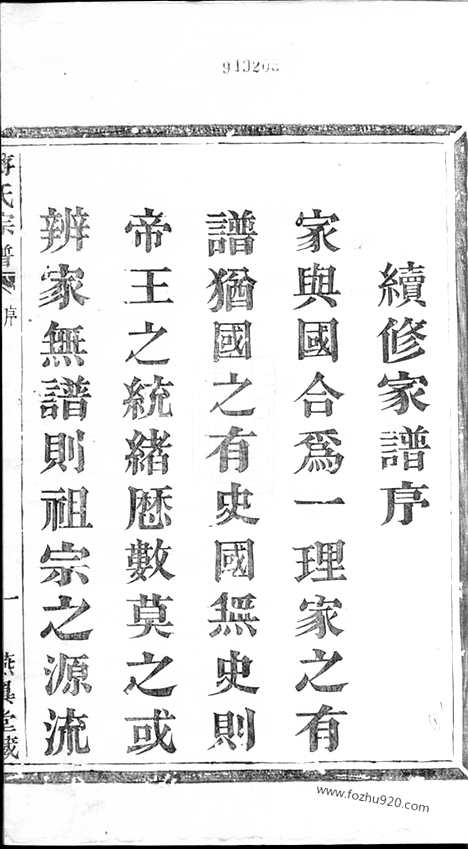 續修家譜序
家與國合爲一理家之有
譜猶國之有史國無史則
帝王之統緒歷數莫之或
辨家無譜則祖宗之源流
氏宗譜
序
一
堂藏
www.fozhu920.com